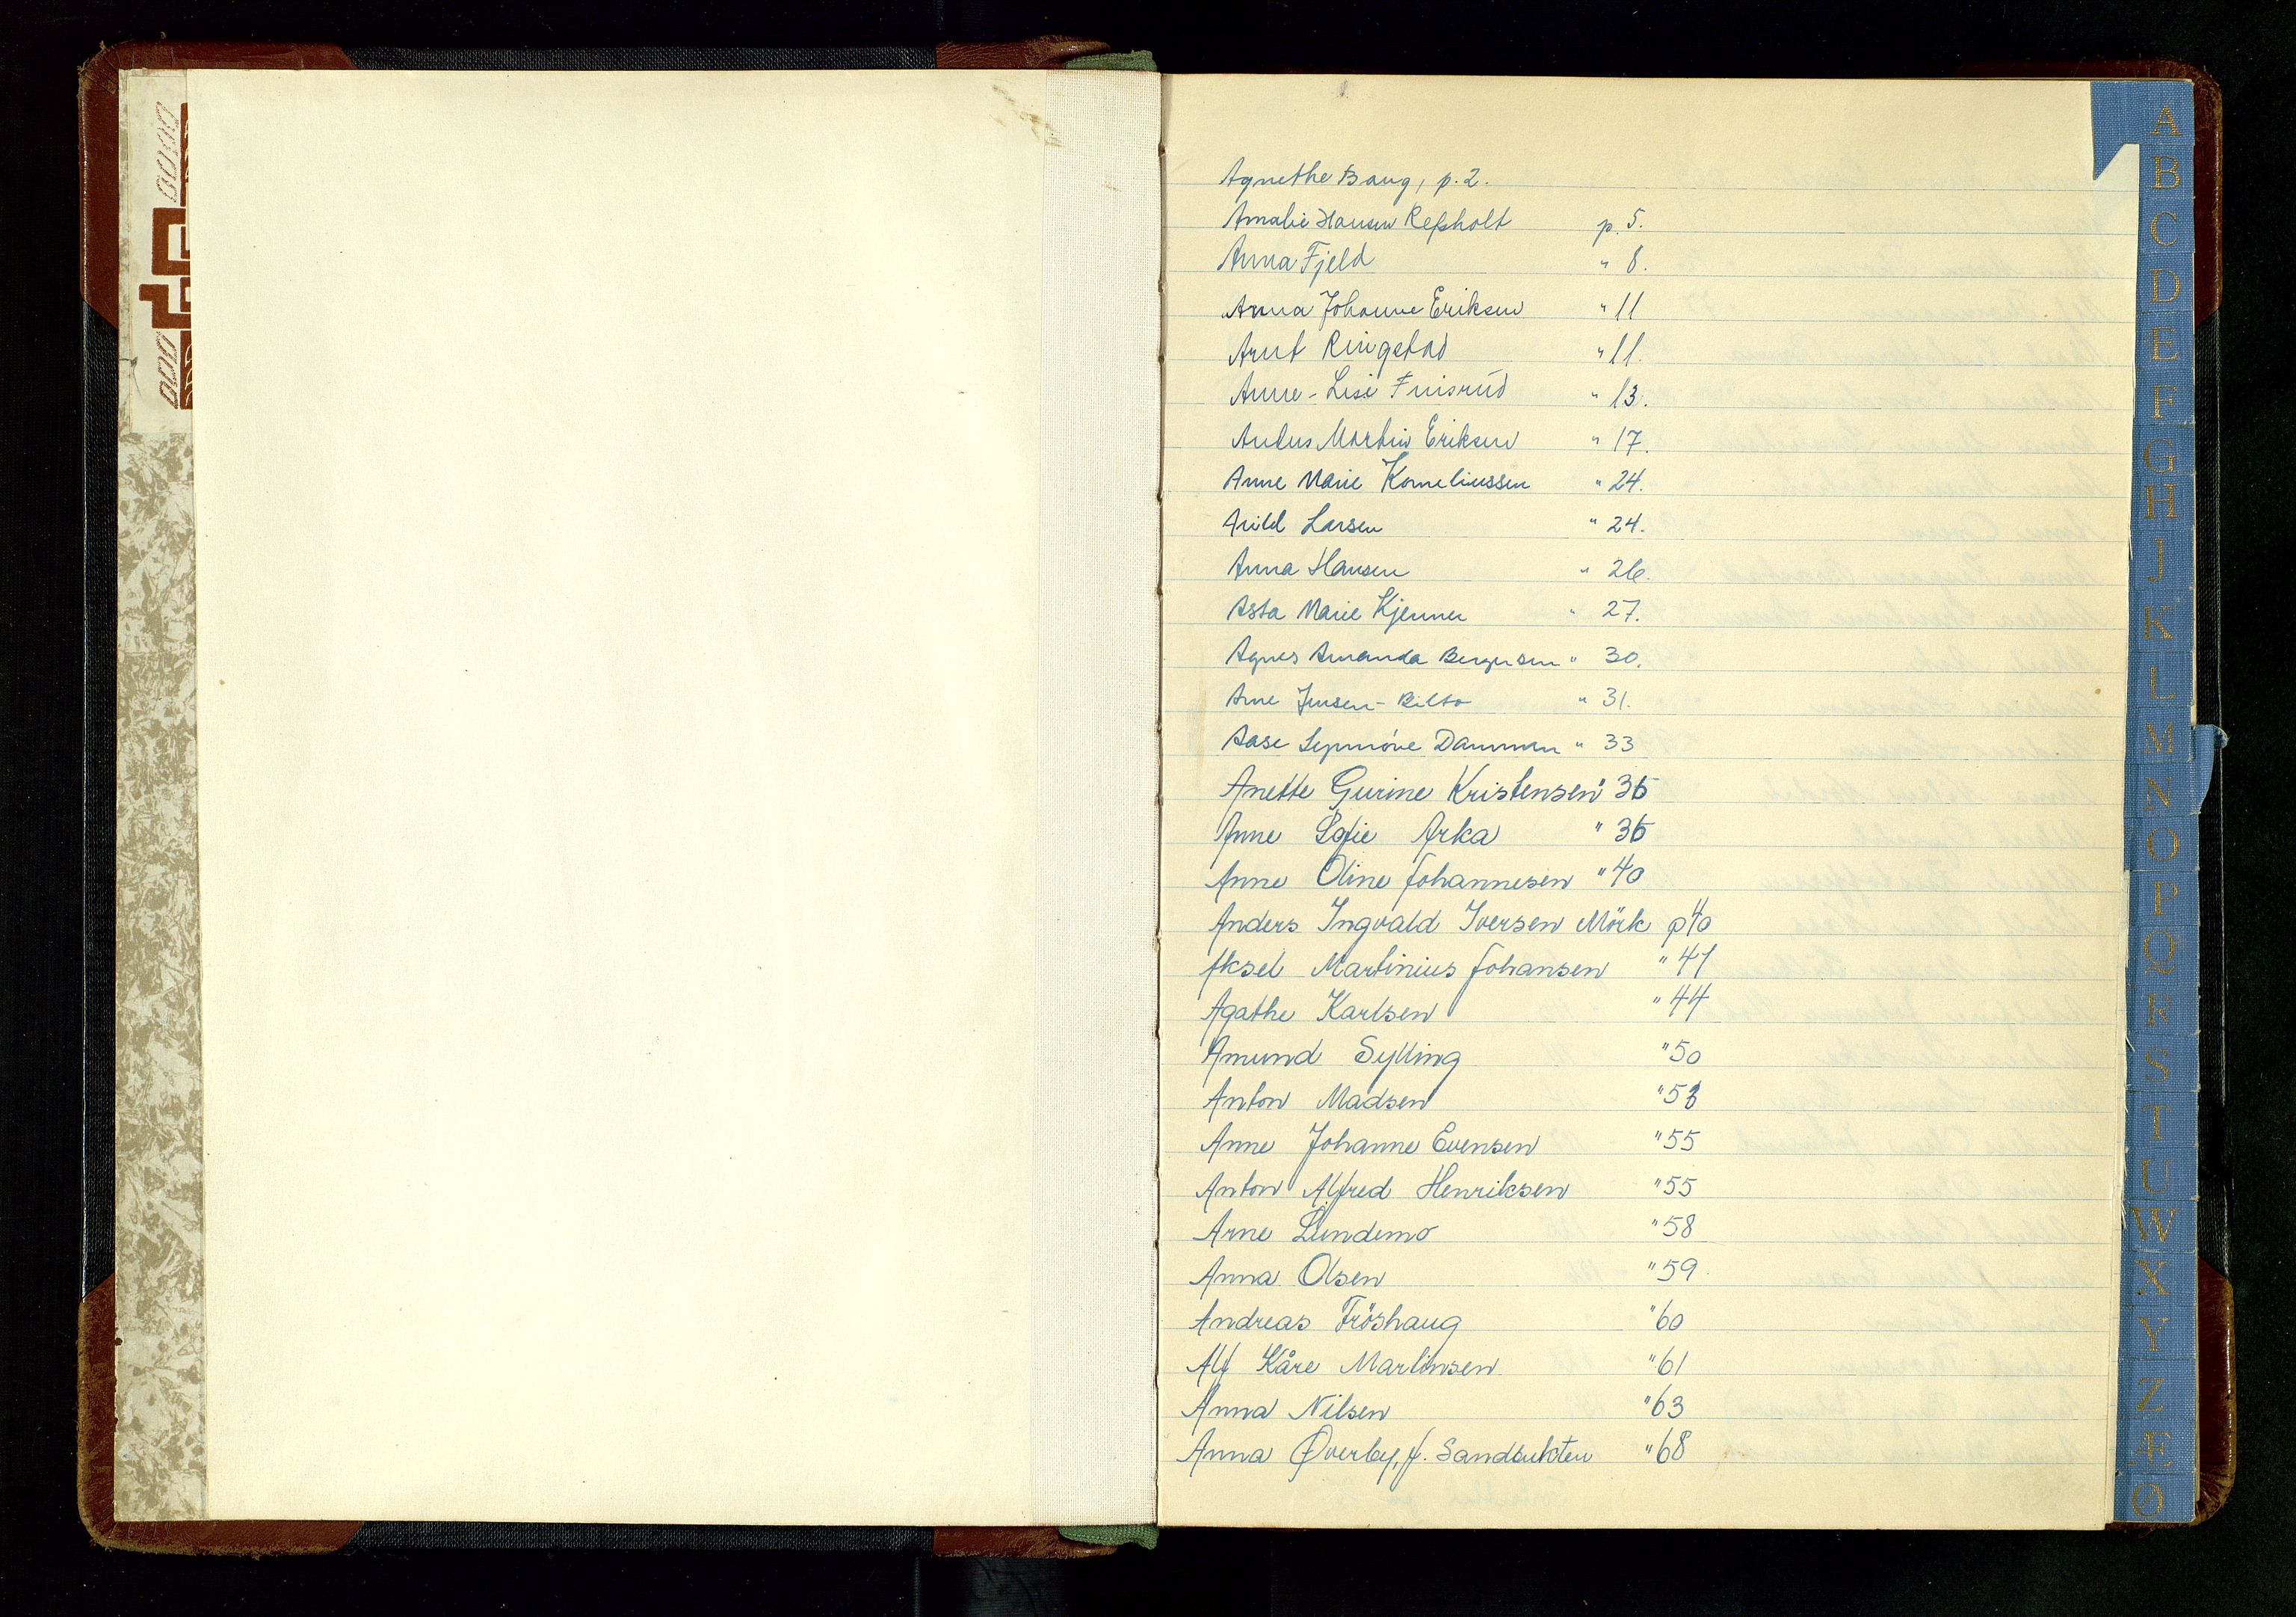 Agnethe Baug, p. 2.
Amalie Hansen Refsholt p. 5.
Anna Fjeld " 8.
Anna Johanne Eriksen " 11
Arnt Ringstad " 11.
Anne-Lise Finsrud " 13.
Antus Martin Eriksen " 17.
Anne Marie Korneliussen " 24.
Arild Larsen " 24.
Anna Hansen " 26.
Asta Marie Kjenner " 27.
Agnes Amanda Bergersen " 30.
Arne Jensen-Bilto " 31.
Aase Synnöve Dammen " 33
Anette Gurine Kristensen " 35
Anne Sofie Arka " 35
Anne Oline Johannesen " 40
Anders Ingvald Iversen Mörk p 40
Aksel Martinius Johansen " 41
Agathe Karlsen " 44
Amund Sylling " 50
Anton Madsen " 53
Anne Johanne Evensen " 55
Anton Alfred Henriksen " 55
Arne Lindemo " 58
Anna Olsen " 59
Andreas Fröshaug " 60
Alf Kåre Martinsen " 61
Anna Nilsen " 63
Anna Øverby, f. Sandbukten " 68
A
B
C
D
E
F
G
H
J
K
L
M
N
O
P
Q
R
S
T
U
W
X
Y
Z
Æ
Ø